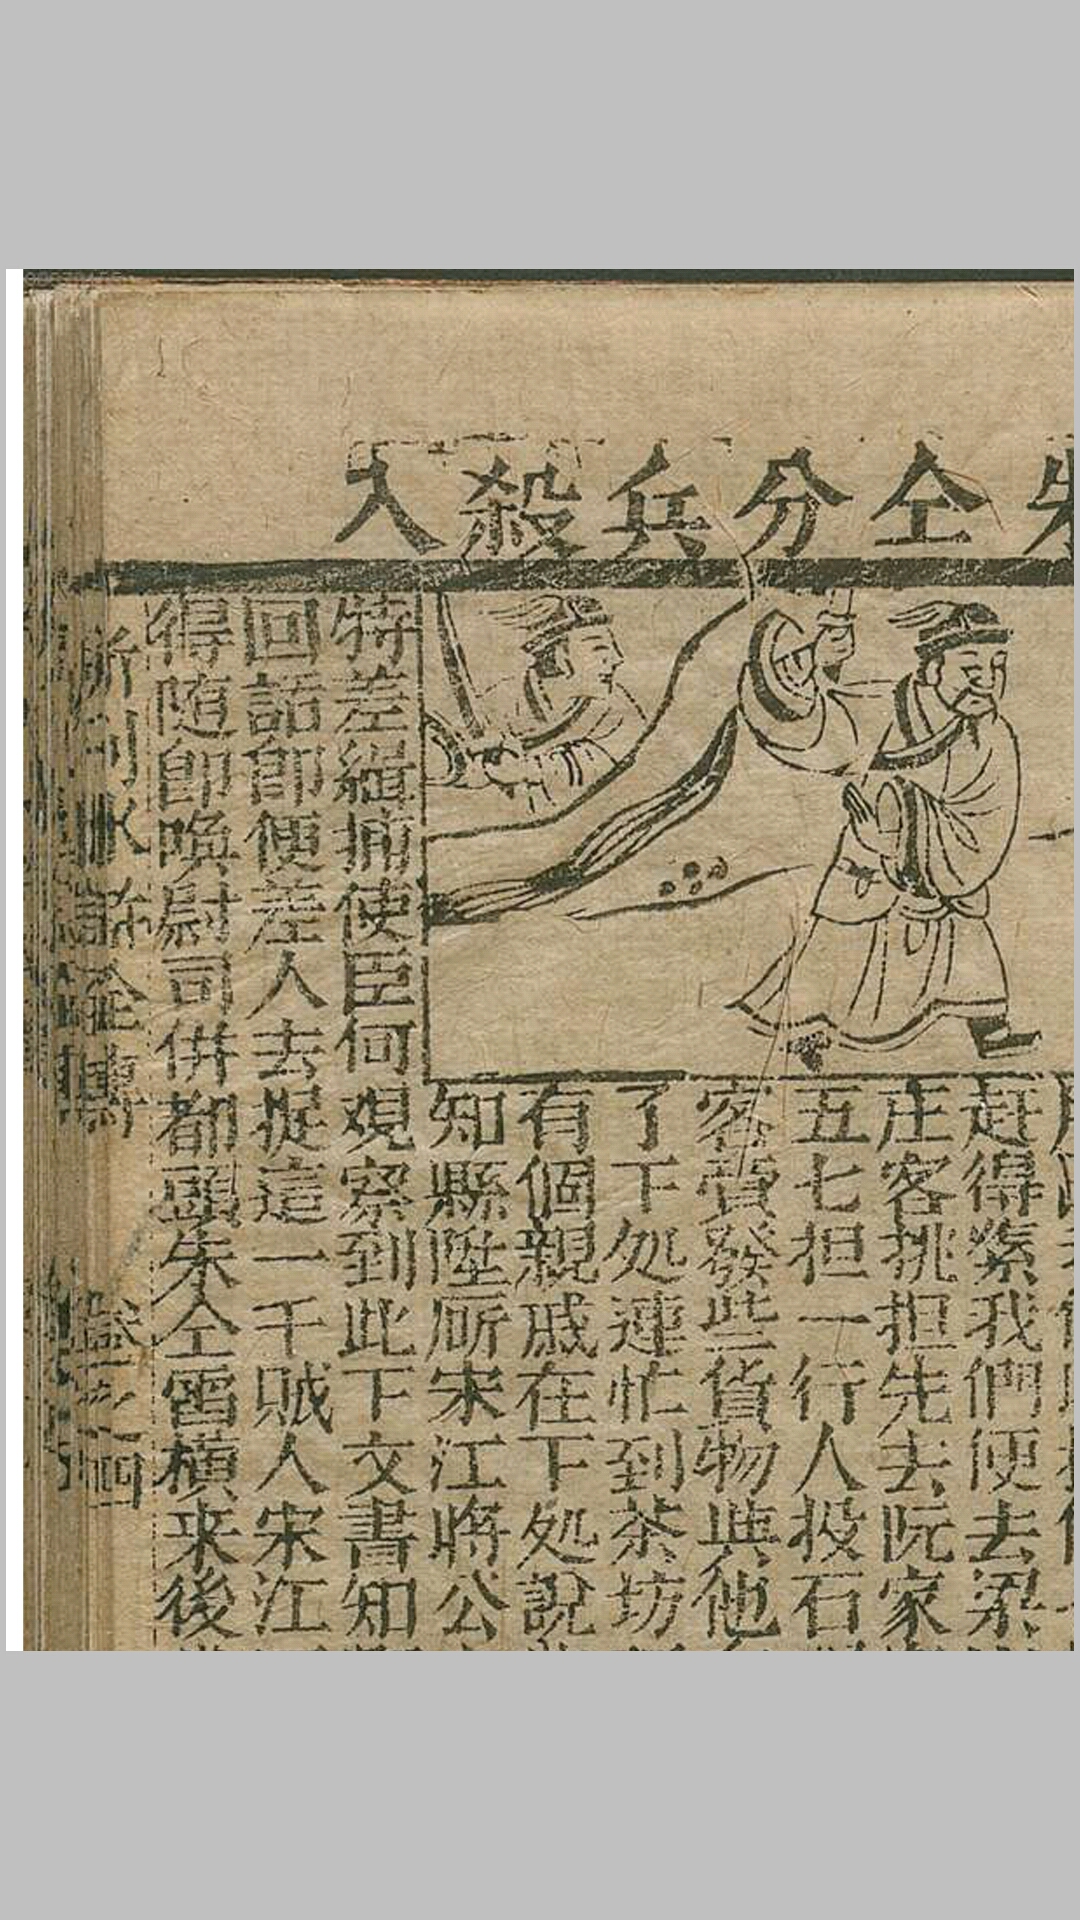 仝分兵殺入
赶得緊我們便去梁
庄客挑担先去阮家
五七担一行人投石
客賫發些貨物與他
了下処連忙到茶坊
有個親戚在下処說
知縣陞𠫊宋江將公
特差緝捕使臣何观察到此下文書知
回話即便差人去捉這一干賊人宋江
得随即喚尉司併都頭朱仝雷横来後
新刊水滸全傳
卷之四